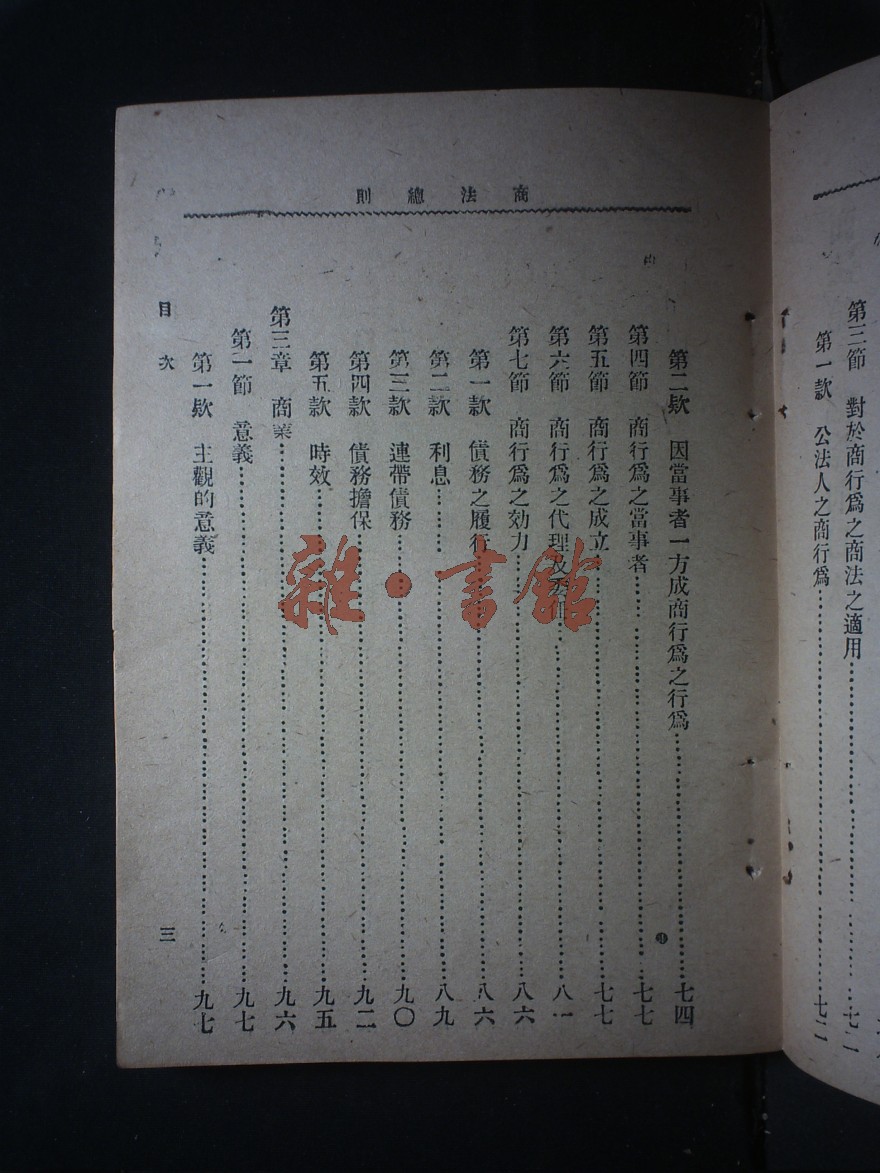 第三節　對於商行爲之商法之適用
第一款　公法人之商行爲……七二
商法總則
第二欵　因當事者一方成商行爲之行爲……七四
第四節　商行爲之當事者……七七
第五節　商行爲之成立……七七
第六節　商行爲之代理及……八一
第七節　商行爲之効力……八六
第一款　債務之履行……八六
第二款　利息……八九
第三款　連帶債務……九〇
第四款　債務擔保……九二
第五款　時效……九五
第三章　商業……九六
第一節　意義……九七
第一欵　主觀的意義……九七
目次
三
雜·書館